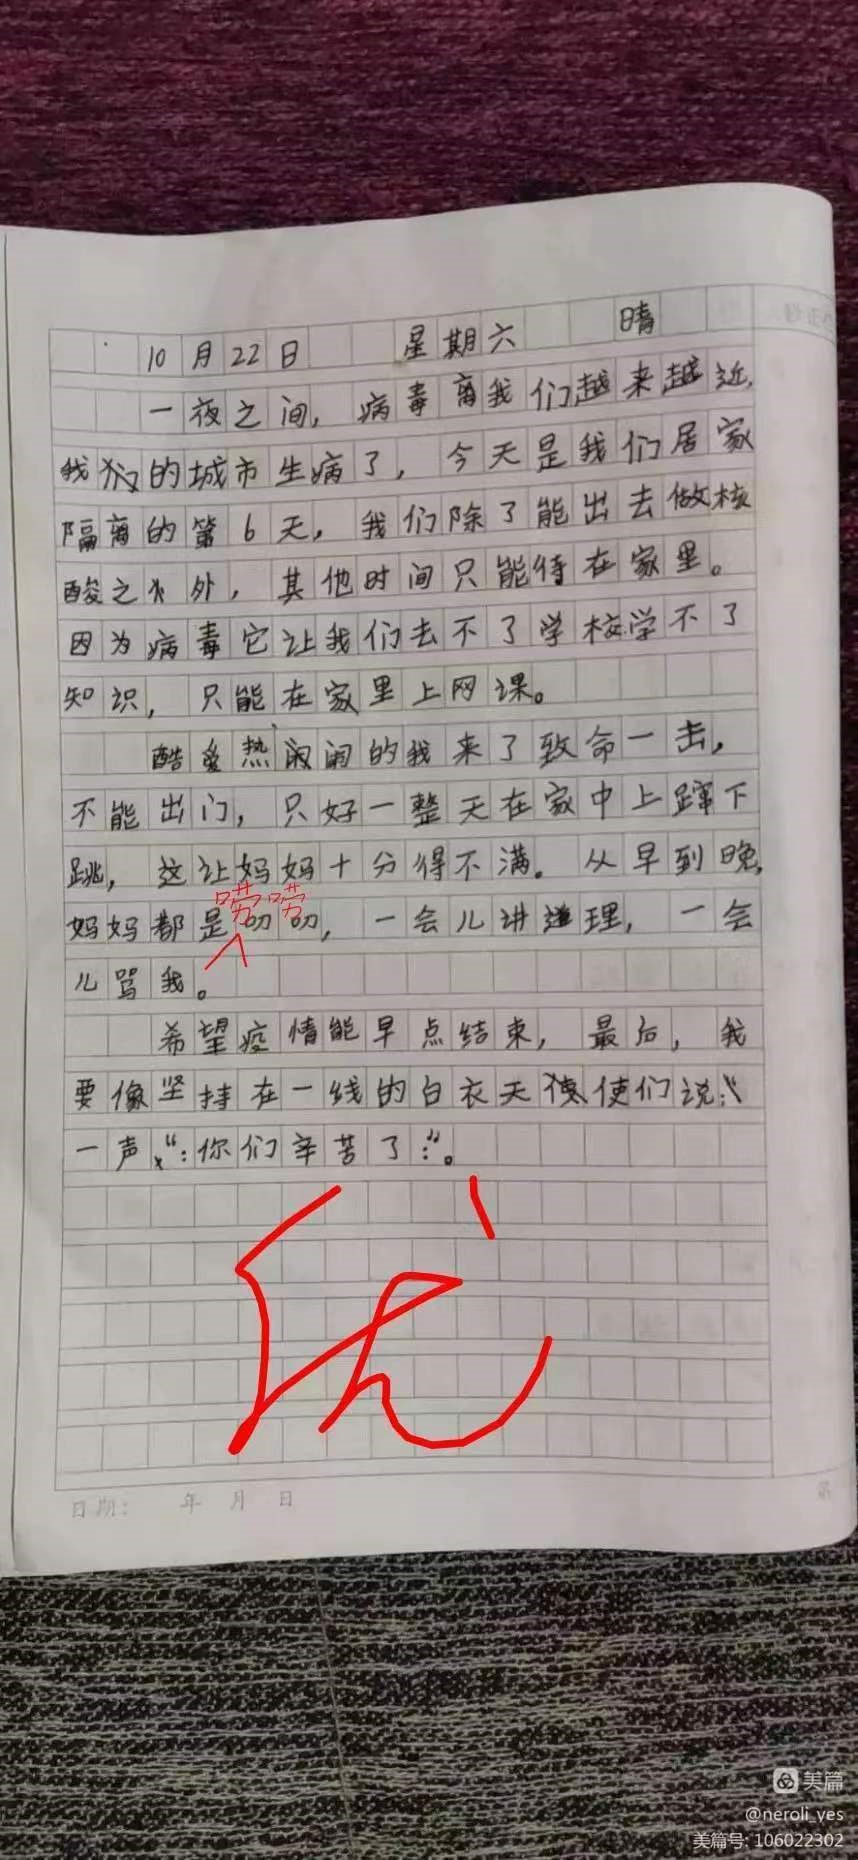 10月22日 星期六 晴
一夜之间，病毒离我们越来越近，
我们的城市生病了，今天是我们居家
隔离的第6天，我们除了能出去做核
酸之外，其他时间只能待在家里。
因为病毒它让我们去不了学校学不了
知识，只能在家里上网课。
酷爱热闹的我来了致命一击，
不能出门，只好一整天在家中上蹿下
跳，这让妈妈十分得不满。从早到晚，
唠唠
妈妈都是叨叨，一会儿讲道理，一会
儿骂我。
希望疫情能早点结束，最后，我
要像坚持在一线的白衣天使使们说：
一声“：你们辛苦了：”。
优
日期： 年 月 日
第
美篇
@neroli_yes
美篇号: 106022302